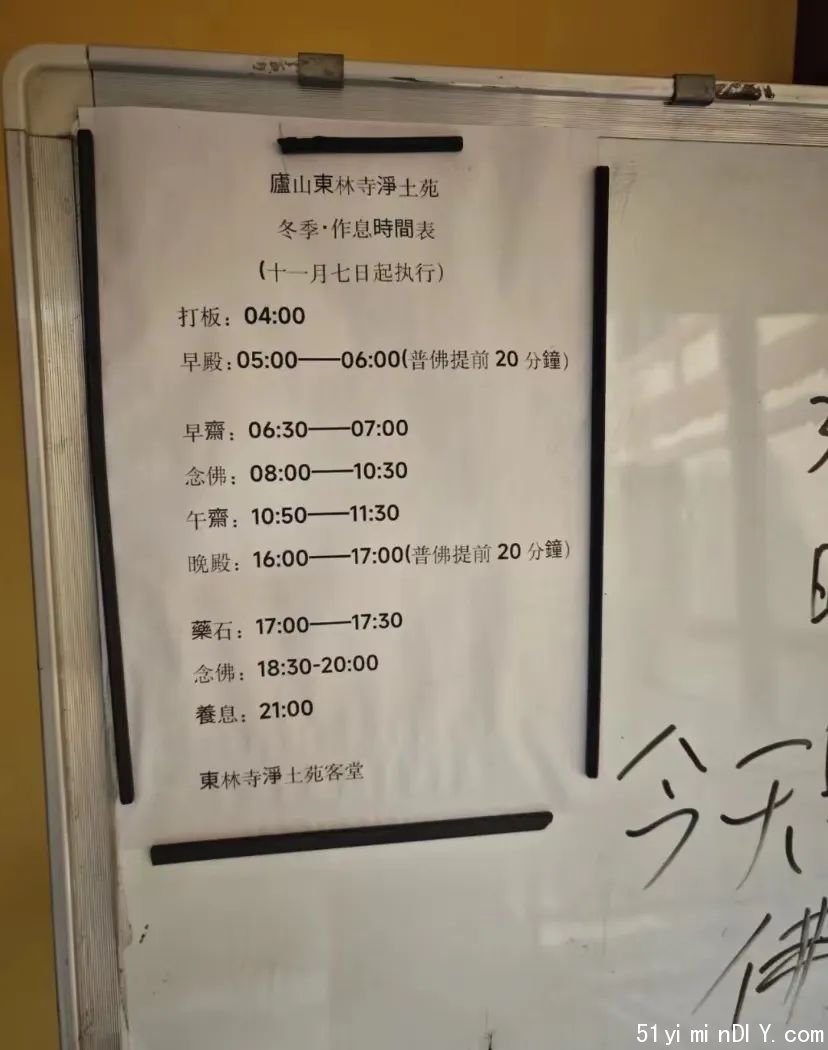 廬山東林寺淨土苑
冬季·作息時間表
(十一月七日起执行)
打板：04:00
早殿：05:00——06:00(普佛提前 20 分鐘)
早齋：06:30——07:00
念佛：08:00——10:30
午齋：10:50——11:30
晚殿：16:00——17:00(普佛提前 20 分鐘)
藥石：17:00——17:30
念佛：18:30-20:00
養息：21:00
東林寺淨土苑客堂
今天
佛
51yiminDIY.com